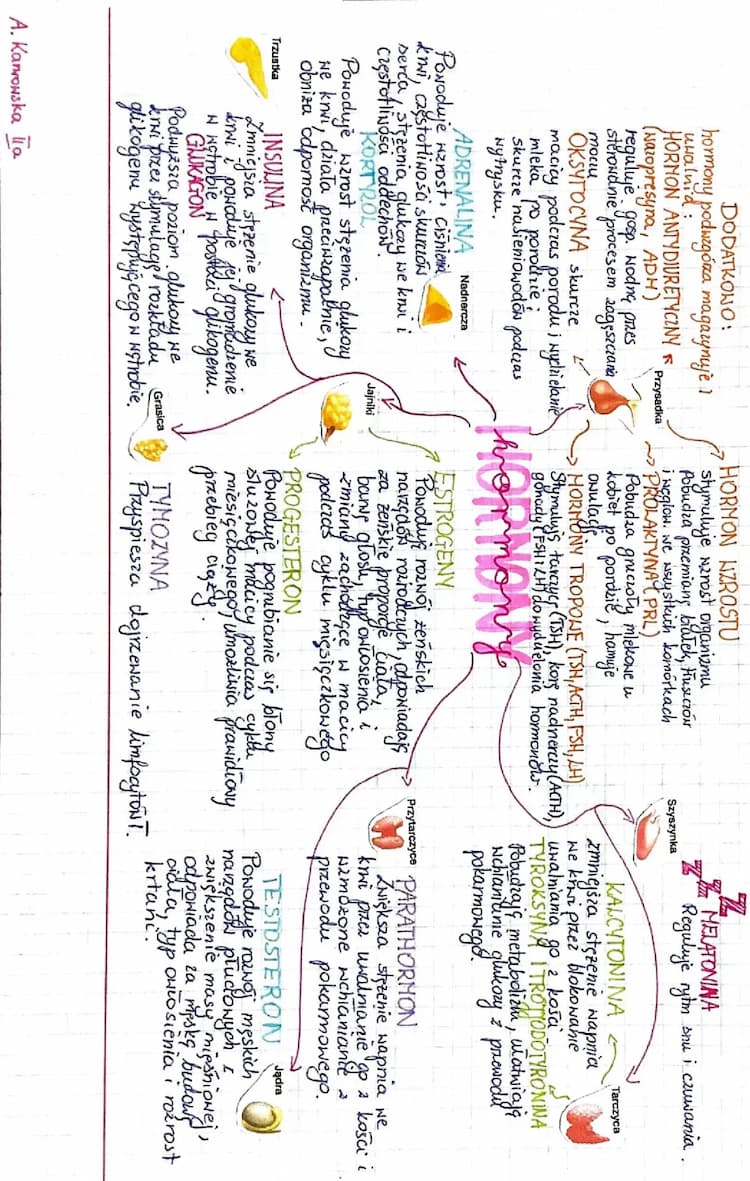 DODATKOWO:
hormony podwzgórza magazynuje i
uwalnia:
HORMON ANTYDIURETYCZNY
(wazopresyna, ADH)
reguluje gosp. wodną przez
sterowanie procesem zagęszczania
moczu
OKSYTOCYNA skurcze
macicy podczas porodu i wydzielanie
mleka po porodzie i
skurcze nasieniowodów podczas
wytrysku.
Przysadka
HORMON WZROSTU
stymuluje wzrost organizmu
Pobudza przemianę białek, tłuszczów
i węglow. we wszystkich komórkach
PROLAKTYNA (PRL)
Pobudza gruczoły mlekowe u
kobiet po porodzie, hamuje
owulację
HORMONY TROPOWE (TSH, ACTH, FSH, LH)
Stymulują tarczycę (TSH), korę nadnerczy (ACTH),
gonady (FSH i LH) do wydzielania hormonów.
Szyszynka
zzz
MELATONINA
Reguluje rytm snu i czuwania.
KALCYTONINA
zmniejsza stężenie wapnia
we krwi przez blokowanie
uwalniania go z kości
TYROKSYNA I TRÓJJODOTYRONINA
Pobudzają metabolizm, ułatwiają
wchłanianie glukozy z przewodu
pokarmowego.
Tarczyca
HORMONY
hormony
ADRENALINA
Nadnercza
Powoduje wzrost: ciśnienia
krwi, częstotliwości skurczów
serca, stężenia glukozy we krwi i
częstotliwości oddechów.
KORTYZOL
Powoduje wzrost stężenia glukozy
we krwi, działa przeciwzapalnie,
obniża odporność organizmu.
Jajniki
ESTROGENY
Powodują rozwój żeńskich
narządów rozrodczych, odpowiadają
za żeńskie proporcje ciała,
barwę głosu, typ owłosienia i
zmiany zachodzące w macicy
podczas cyklu miesiączkowego
PROGESTERON
Powoduje pogrubianie się błony
śluzowej macicy podczas cyklu
miesiączkowego, umożliwia prawidłowy
przebieg ciąży.
Przytarczyce
PARATHORMON
Zwiększa stężenie wapnia we
krwi przez uwalnianie go z kości i
wzmożone wchłanianie z
przewodu pokarmowego.
Trzustka
INSULINA
Zmniejsza stężenie glukozy we
krwi i powoduje jej gromadzenie
w wątrobie w postaci glikogenu.
GLUKAGON
Podwyższa poziom glukozy we
krwi przez stymulację rozkładu
glikogenu występującego w wątrobie.
Grasica
TYMOZYNA
Przyspiesza dojrzewanie limfocytów T.
TESTOSTERON
Jądra
Powoduje rozwój męskich
narządów płciowych i
zwiększenie masy mięśniowej,
odpowiada za męską budowę
ciała, typ owłosienia i rozrost
krtani.
IIa